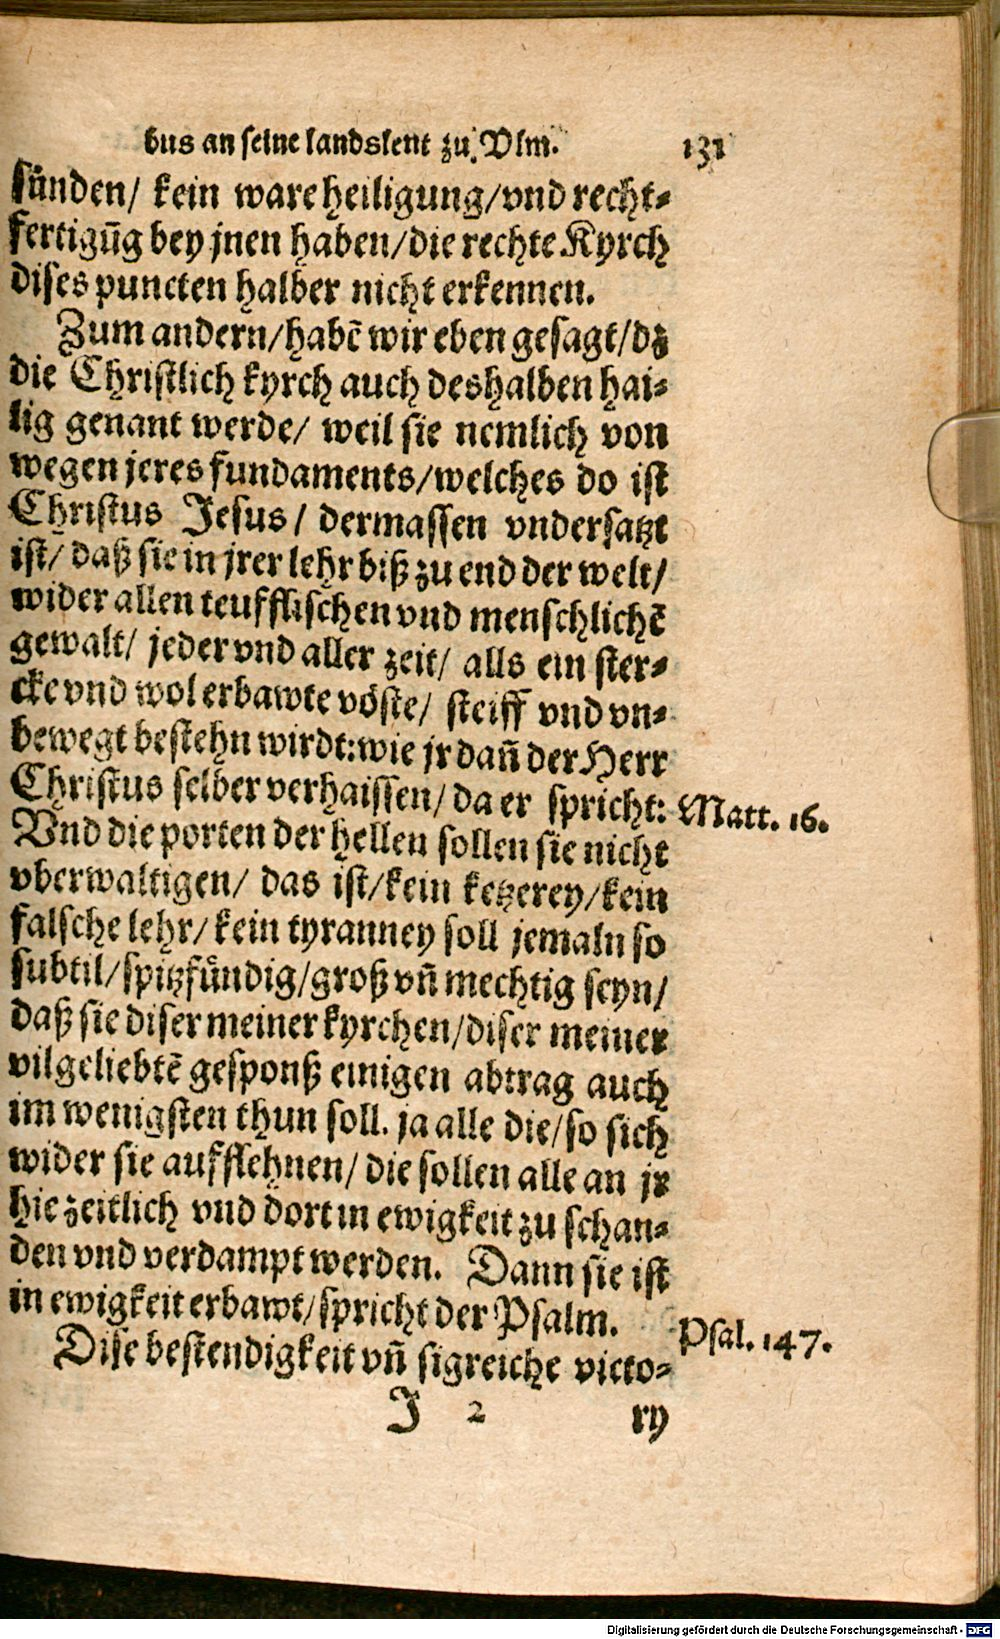 bus an seine landsleut zu Vlm. 131
sünden/ kein ware heiligung/vnd recht⸗
fertigūg bey jnen haben/die rechte Kyrch
dises puncten halber nicht erkennen.
Zum andern/habē wir eben gesagt/dz
die Christlich kyrch auch deshalben hai⸗
lig genant werde/ weil sie nemlich von
wegen jeres fundaments/welches do ist
Christus Jesus/ dermassen vndersatzt
ist/ daß sie in jrer lehr biß zu end der welt/
wider allen teufflischen vnd menschlichē
gewalt/ jeder vnd aller zeit/ alls ein ster⸗
cke vnd wol erbawte vöste/ steiff vnd vn⸗
bewegt bestehn wirdt:wie jr dañ der Herr
Christus selber verhaissen/ da er spricht: Matt. 16.
Vnd die porten der hellen sollen sie nicht
vberwaltigen/ das ist/kein ketzerey/kein
falsche lehr/ kein tyranney soll jemaln so
subtil/spitzfündig/groß vñ mechtig seyn/
daß sie diser meiner kyrchen/diser meiner
vilgeliebtē gesponß einigen abtrag auch
im wenigsten thun soll. ja alle die/so sich
wider sie aufflehnen/ die sollen alle an jr
hie zeitlich vnd dort in ewigkeit zu schan⸗
den vnd verdampt werden. Dann sie ist
in ewigkeit erbawt/spricht der Psalm. Psal. 147.
Dise bestendigkeit vñ sigreiche victo⸗
J 2 ry
Digitalisierung gefördert durch die Deutsche Forschungsgemeinschaft - DFG